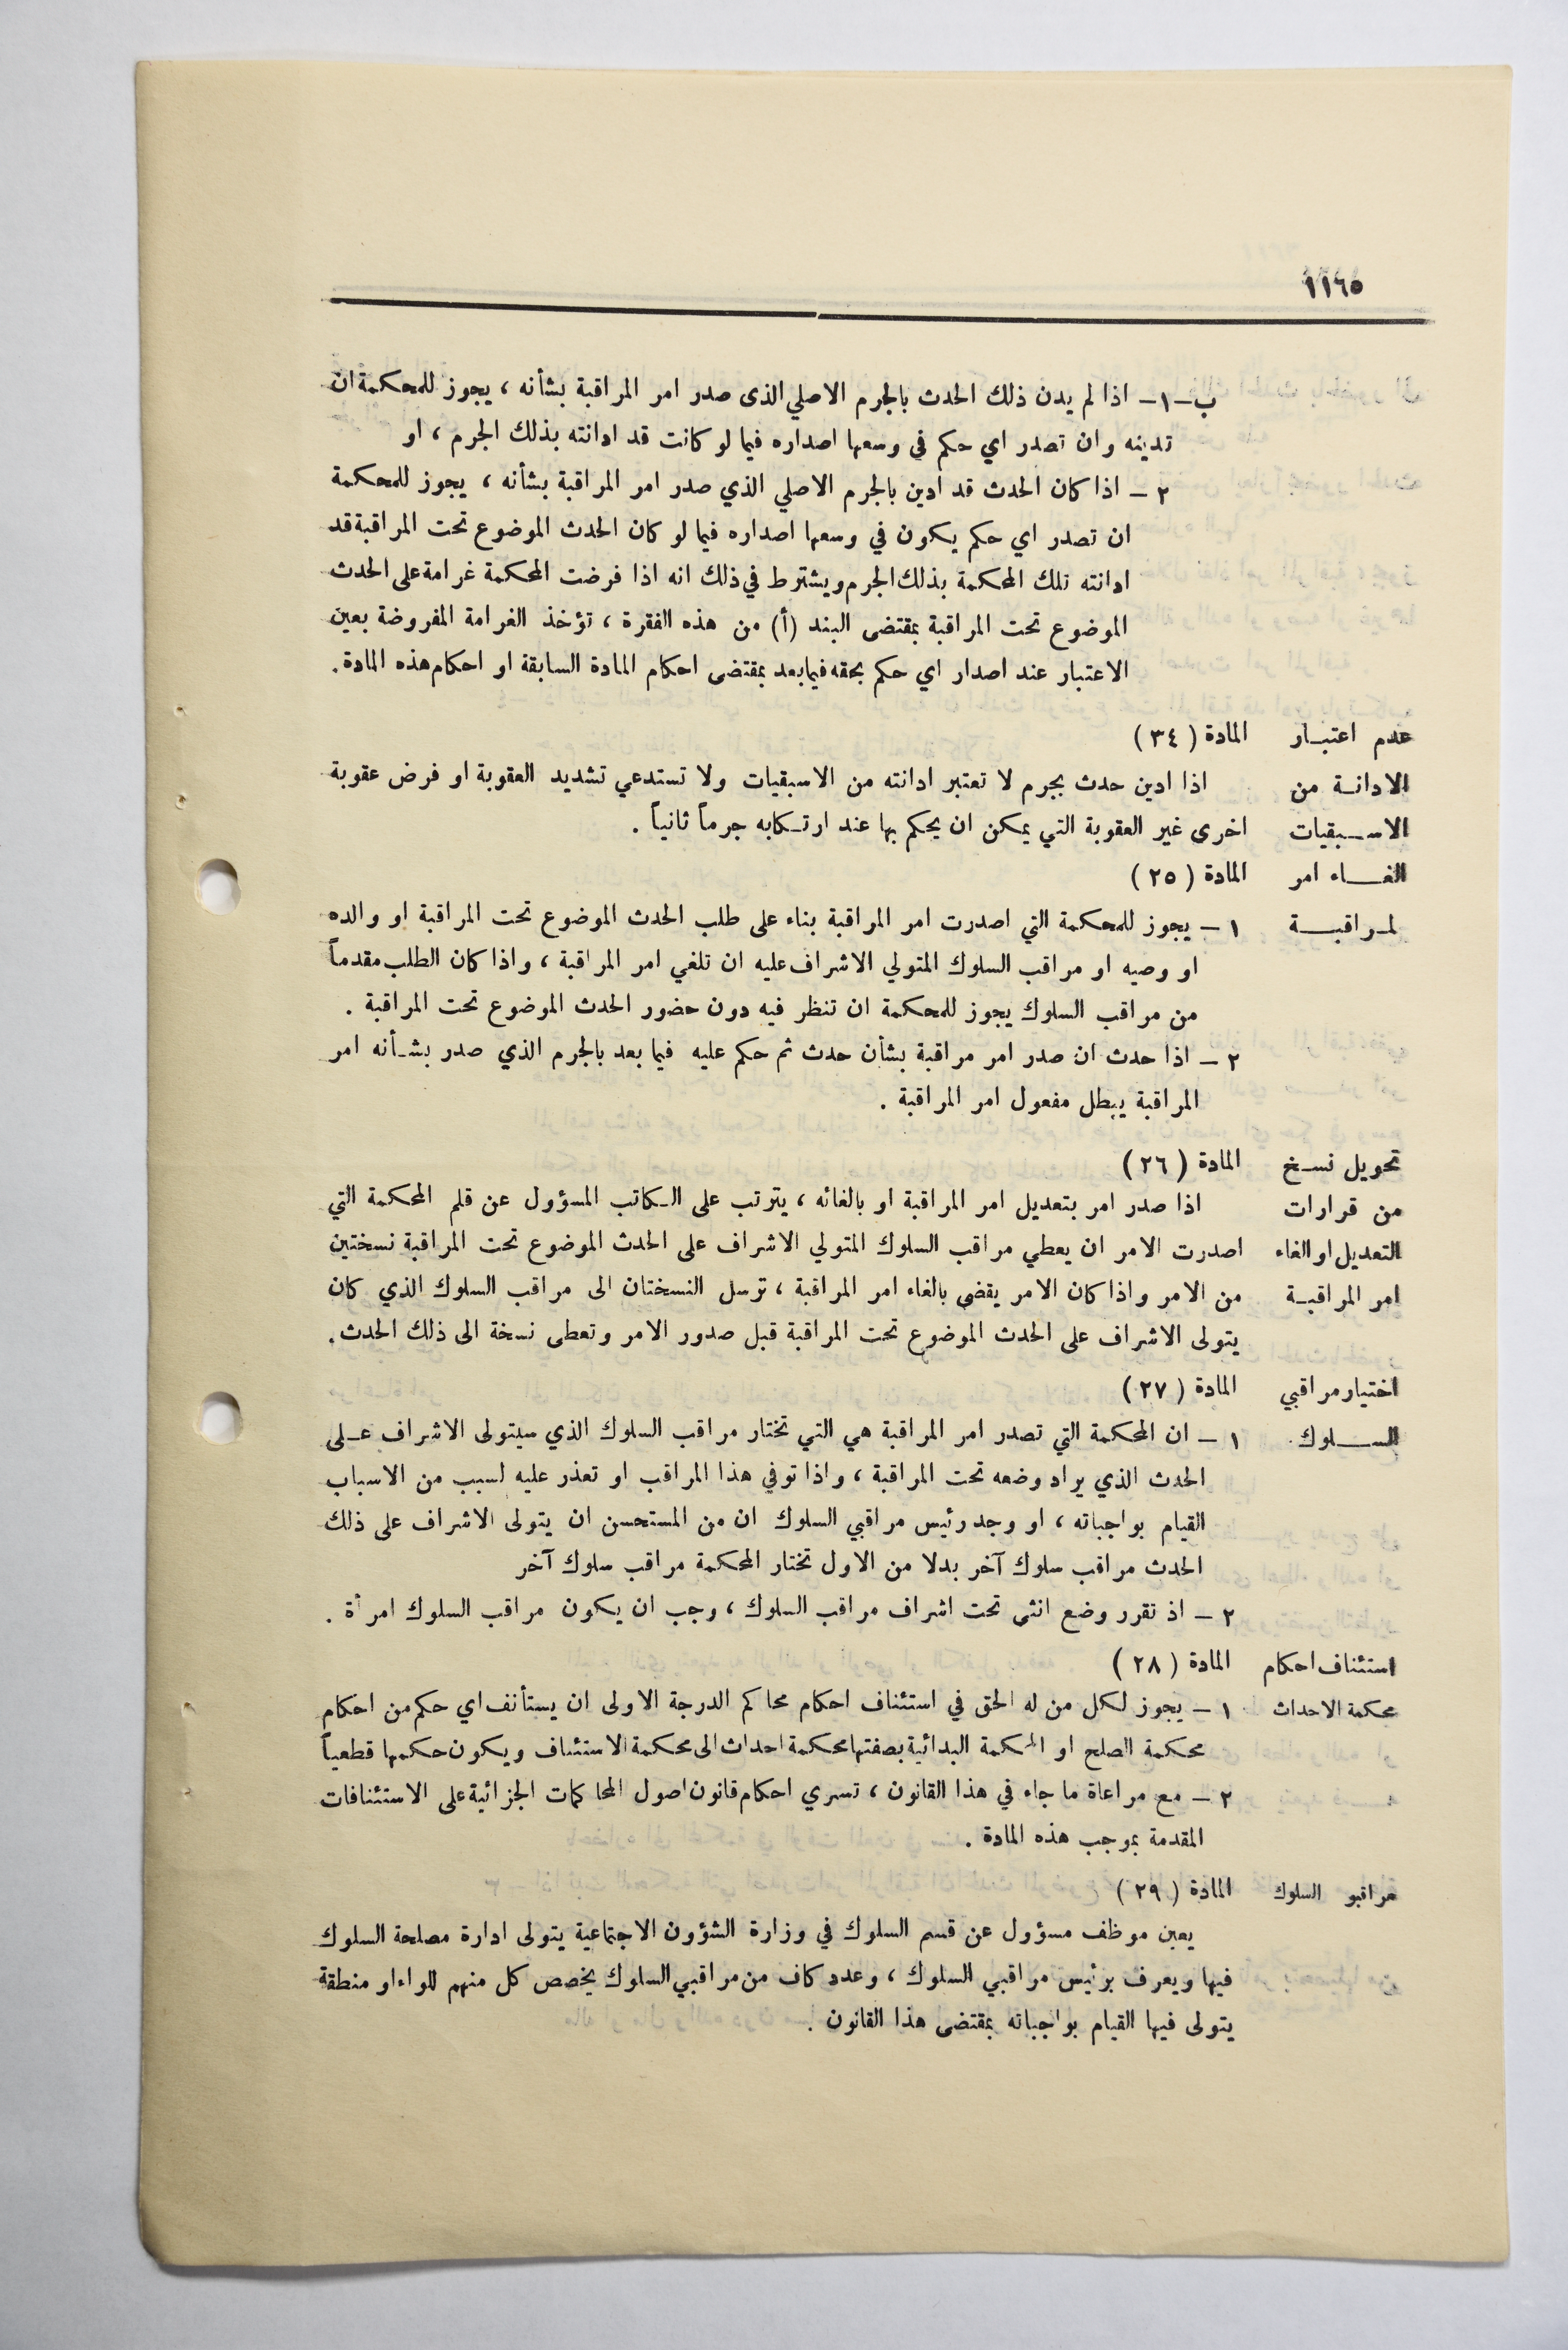 ١١٦٥
ب–١– اذا لم يدن ذلك الحدث بالجرم الاصلي الذى صدر امر المراقبة بشأنه ، يجوز للمحكمة ان
تدينه وان تصدر اي حكم في وسعها اصداره فيما لو كانت قد ادانته بذلك الجرم ، او
٢ – اذا كان الحدث قد ادين بالجرم الاصلي الذي صدر امر المراقبة بشأنه ، يجوز للمحكمة
ان تصدر اي حكم يكون في وسعها اصداره فيما لو كان الحدث الموضوع تحت المراقبة قد
ادانته تلك المحكمة بذلك الجرم ويشترط في ذلك انه اذا فرضت المحكمة غرامة على الحدث
الموضوع تحت المراقبة بمقتضى البند (أ) من هذه الفقرة ، تؤخذ الغرامة المفروضة بعين
الاعتبار عند اصدار اي حكم بحقه فيما بعد بمقتضى احكام المادة السابقة او احكام هذه المادة .
عدم اعتبـار المادة ( ٣٤ )
الادانـة من اذا ادين حدث بجرم لا تعتبر ادانته من الاسبقيات ولا تستدعي تشديد العقوبة او فرض عقوبة
الاســبقيات اخرى غير العقوبة التي يمكن ان يحكم بها عند ارتـكابه جرماً ثانياً .
الغــاء امر المادة ( ٢٥ )
لمـراقبــة ١ – يجوز للمحكمة التي اصدرت امر المراقبة بناء على طلب الحدث الموضوع تحت المراقبة او والده
او وصيه او مراقب السلوك المتولي الاشراف عليه ان تلغي امر المراقبة ، واذا كان الطلب مقدماً
من مراقب السلوك يجوز للمحكمة ان تنظر فيه دون حضور الحدث الموضوع تحت المراقبة .
٢ – اذا حدث ان صدر امر مراقبة بشأن حدث ثم حكم عليه فيما بعد بالجرم الذي صدر بشـأنه امر
المراقبة يبطل مفعول امر المراقبة .
تحويل نسـخ المادة ( ٢٦ )
من قرارات اذا صدر امر بتعديل امر المراقبة او بالغائه ، يترتب على الـكاتب المسؤول عن قلم المحكمة التي
التعديل او الغاء اصدرت الامر ان يعطي مراقب السلوك المتولي الاشراف على الحدث الموضوع تحت المراقبة نسختين
امر المراقبـة من الامر واذا كان الامر يقضي بالغاء امر المراقبة ، ترسل النسختان الى مراقب السلوك الذي كان
يتولى الاشراف على الحدث الموضوع تحت المراقبة قبل صدور الامر وتعطى نسخة الى ذلك الحدث .
اختيار مراقبي المادة ( ٢٧ )
الســـلوك ١ – ان المحكمة التي تصدر امر المراقبة هي التي تختار مراقب السلوك الذي سيتولى الاشراف عـلى
الحدث الذي يراد وضعه تحت المراقبة ، واذا توفي هذا المراقب او تعذر عليه لسبب من الاسباب
القيام بواجباته ، او وجد رئيس مراقبي السلوك ان من المستحسن ان يتولى الاشراف على ذلك
الحدث مراقب سلوك آخر بدلا من الاول تختار المحكمة مراقب سلوك آخر
٢ – اذ تقرر وضع انثى تحت اشراف مراقب السلوك ، وجب ان يكون مراقب السلوك امرأة .
استئناف احكام المادة ( ٢٨ )
محكمة الاحداث ١ – يجوز لكل من له الحق في استئناف احكام محاكم الدرجة الاولى ان يستأنف اي حكم من احكام
محكمة الصلح او المحكمة البدائية بصفتها محكمة احداث الى محكمة الاستئناف ويكون حكمها قطعياً
٢ – مع مراعاة ما جاء في هذا القانون ، تسري احكام قانون اصول المحاكمات الجزائية على الاستئنافات
المقدمة بموجب هذه المادة .
مراقبو السلوك المادة ( ٢٩ )
يعين موظف مسؤول عن قسم السلوك في وزارة الشؤون الاجتماعية يتولى ادارة مصلحة السلوك
فيها ويعرف برئيس مراقبي السلوك ، وعدد كاف من مراقبي السلوك يخصص كل منهم للواء او منطقة
يتولى فيها القيام بواجباته بمقتضى هذا القانون .